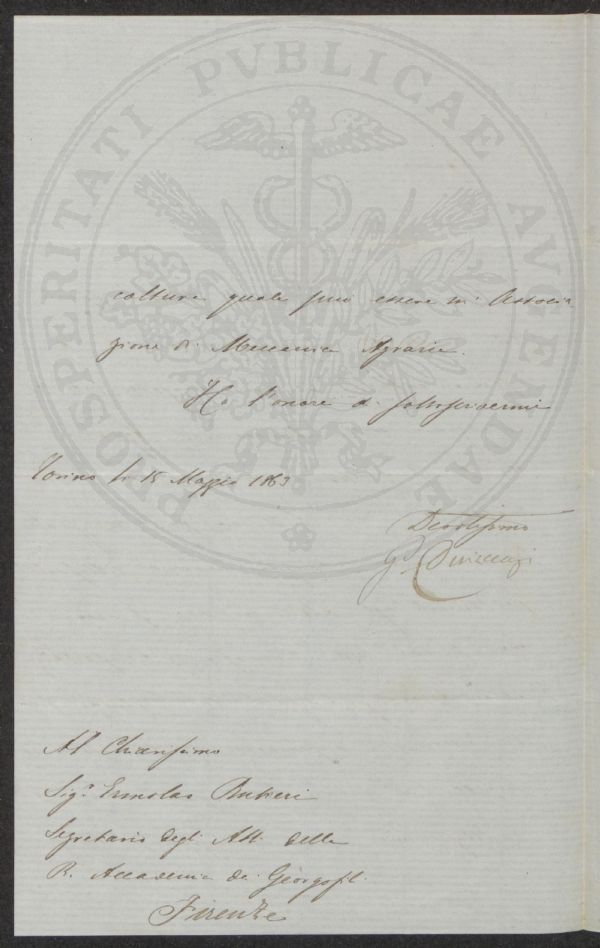 PROSPERITATI PVBLICAE AVGENDAE
colture quale può essere un' Associa
zione di Meccanica Agraria.
Ho l'onore di sottoscrivermi
Torino li 15 Maggio 1863
Devotissimo
Al Chiarissimo
Sig.r Ermolao Rubieri
Segretario degli Atti della
R. Accademia dei Georgofili
Firenze